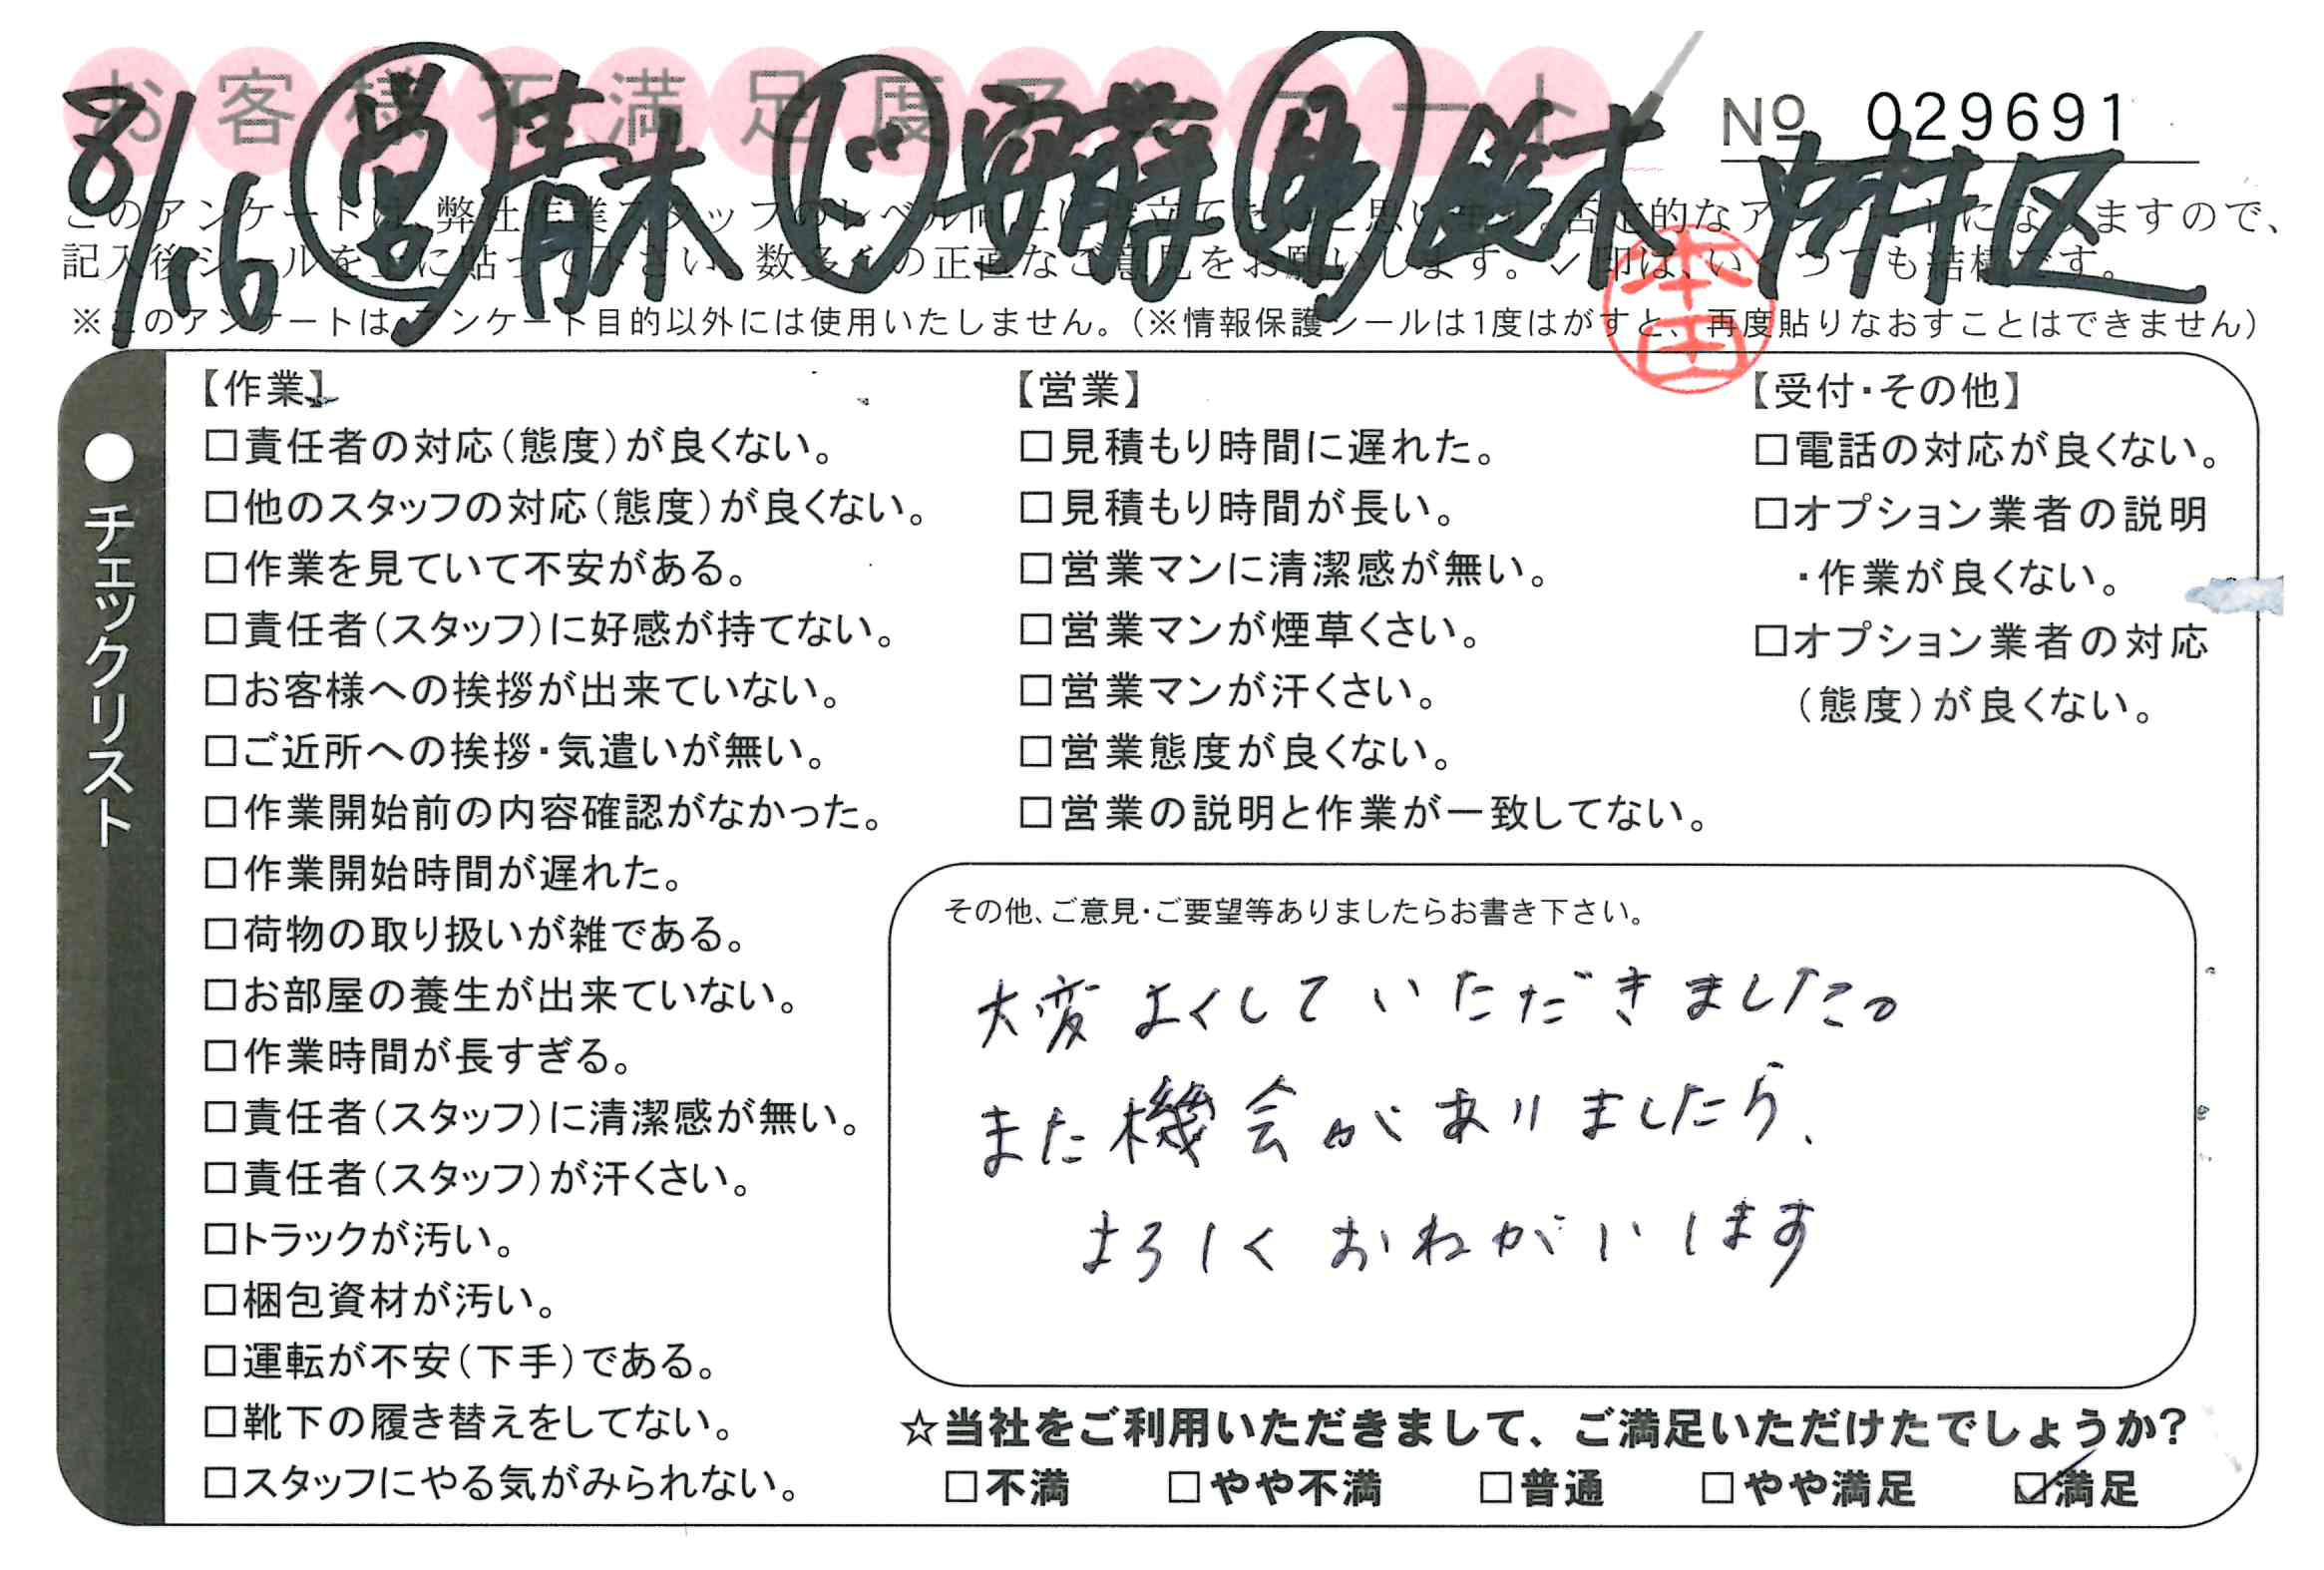 お客様不満足度アンケート
8/16 営 青木 ド 安藤 助 鈴木 中村区
No 029691
このアンケートは、弊社作業スタッフのレベル向上に役立てたいと思います。否定的なアンケートになりますので、
記入後シールを上に貼って下さい。数多くの正直なご意見をお願いします。✓印は、いくつでも結構です。
※このアンケートは、アンケート目的以外には使用いたしません。（※情報保護シールは1度はがすと、再度貼りなおすことはできません）
本田
●チェックリスト
【作業】
□責任者の対応（態度）が良くない。
□他のスタッフの対応（態度）が良くない。
□作業を見ていて不安がある。
□責任者（スタッフ）に好感が持てない。
□お客様への挨拶が出来ていない。
□ご近所への挨拶・気遣いが無い。
□作業開始前の内容確認がなかった。
□作業開始時間が遅れた。
□荷物の取り扱いが雑である。
□お部屋の養生が出来ていない。
□作業時間が長すぎる。
□責任者（スタッフ）に清潔感が無い。
□責任者（スタッフ）が汗くさい。
□トラックが汚い。
□梱包資材が汚い。
□運転が不安（下手）である。
□靴下の履き替えをしてない。
□スタッフにやる気がみられない。
【営業】
□見積もり時間に遅れた。
□見積もり時間が長い。
□営業マンに清潔感が無い。
□営業マンが煙草くさい。
□営業マンが汗くさい。
□営業態度が良くない。
□営業の説明と作業が一致してない。
【受付・その他】
□電話の対応が良くない。
□オプション業者の説明
・作業が良くない。
□オプション業者の対応
（態度）が良くない。
その他、ご意見・ご要望等ありましたらお書き下さい。
大変よくしていただきました。
また機会がありましたら、
よろしくおねがいします
☆当社をご利用いただきまして、ご満足いただけたでしょうか？
□不満 □やや不満 □普通 □やや満足 ☑満足